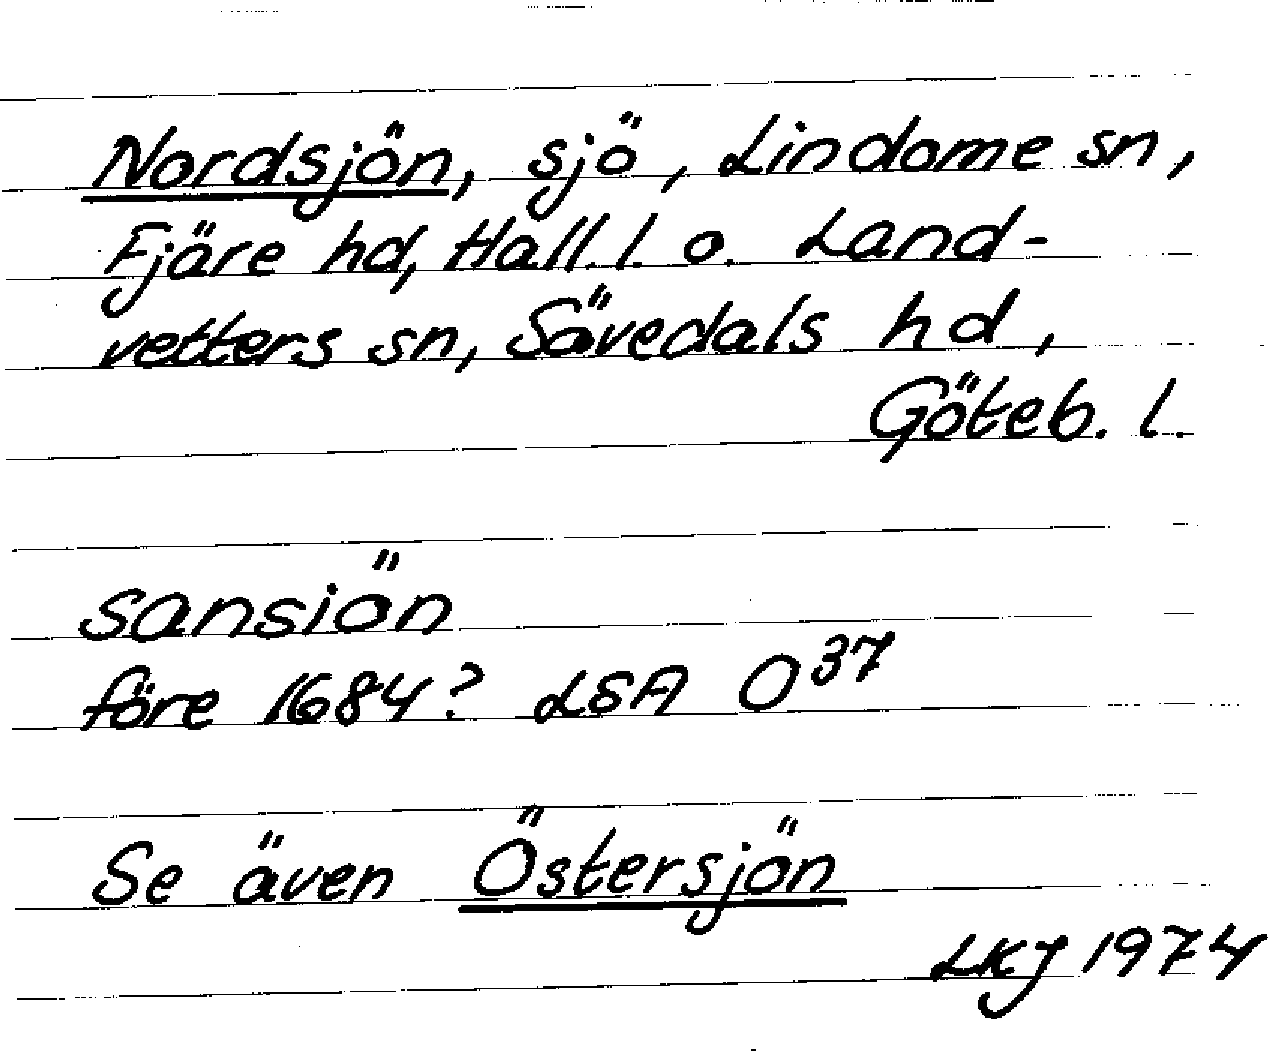 Nordsjön, sjö, Lindome sn,
Fjäre hd, Hall. l. o. Land-
vetters sn, Sävedals hd,
Göteb. l.
Sansiön
före 1684? LSA O37
Se även Östersjön
LKJ 1974